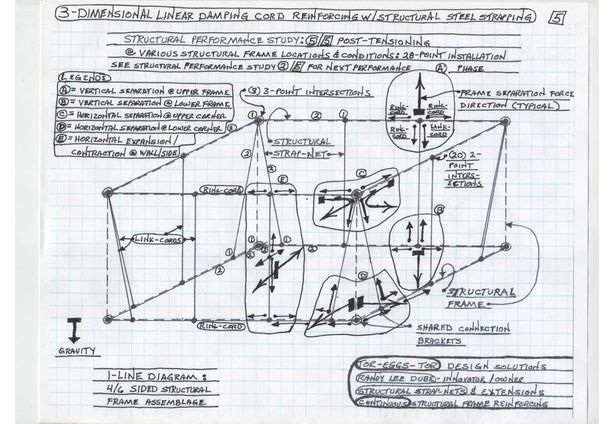 3-DIMENSIONAL LINEAR DAMPING CORD REINFORCING W/STRUCTURAL STEEL STRAPPING
5
STRUCTURAL PERFORMANCE STUDY: 5/5 POST-TENSIONING
@ VARIOUS STRUCTURAL FRAME LOCATIONS & CONDITIONS: 28-POINT INSTALLATION
SEE STRUCTURAL PERFORMANCE STUDY 2/5 FOR NEXT PERFORMANCE PHASE
LEGEND:
A = VERTICAL SEPARATION @ UPPER FRAME
B = VERTICAL SEPARATION @ LOWER FRAME
C = HORIZONTAL SEPARATION @ UPPER CORNER
D = HORIZONTAL SEPARATION @ LOWER CORNER
E = HORIZONTAL EXPANSION/
CONTRACTION @ WALL/SIDE
(8) 3-POINT INTERSECTIONS
A
FRAME SEPARATION FORCE
DIRECTION (TYPICAL)
RING-CORD
RING-CORD
RING-CORD
LINK-CORD
STRUCTURAL
STRAP-NET
(20) 2-
POINT
INTER-
SECTIONS
RING-CORD
E
C
B
LINK-CORDS
D
STRUCTURAL
FRAME
RING-CORD
SHARED CONNECTION
BRACKETS
GRAVITY
1-LINE DIAGRAM:
4/6 SIDED STRUCTURAL
FRAME ASSEMBLAGE
TOR-EGGS-TOR DESIGN SOLUTIONS
RANDY LEE DUBE-INNOVATOR/OWNER
STRUCTURAL STRAP-NETS & EXTENSIONS
CONTINUOUS STRUCTURAL FRAME REINFORCING